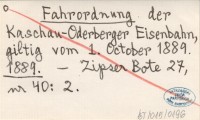 Fahrordnung der
Kaschau-Oderberger Eisenbahn,
giltig vom 1. October 1889.
1889. — Zipser Bote 27,
nr 40: 2.